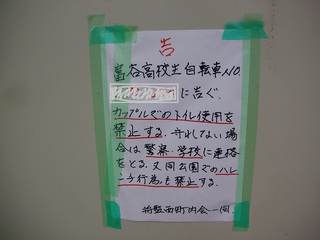 告
富谷高校生自転車NO.
に告ぐ.
カップルでのトイレ使用を
禁止する. 守れてない場
合は警察・学校に連絡
をとる. 又同公園でのハレ
ンチ行為も禁止する.
将監西町内会一同.